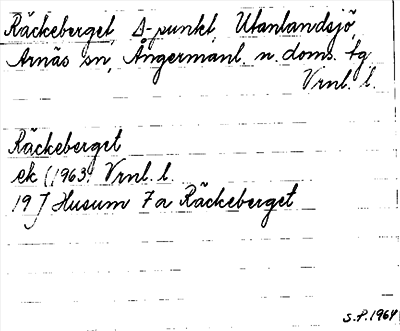 Räckeberget, Δ-punkt, Utanlandsjö,
Arnäs sn, Ångermanl. n. doms. tg
Vrnl. l.
Räckeberget
ek (1963) Vrnl. l.
19 J Husum 7a Räckeberget
S.P. 1964